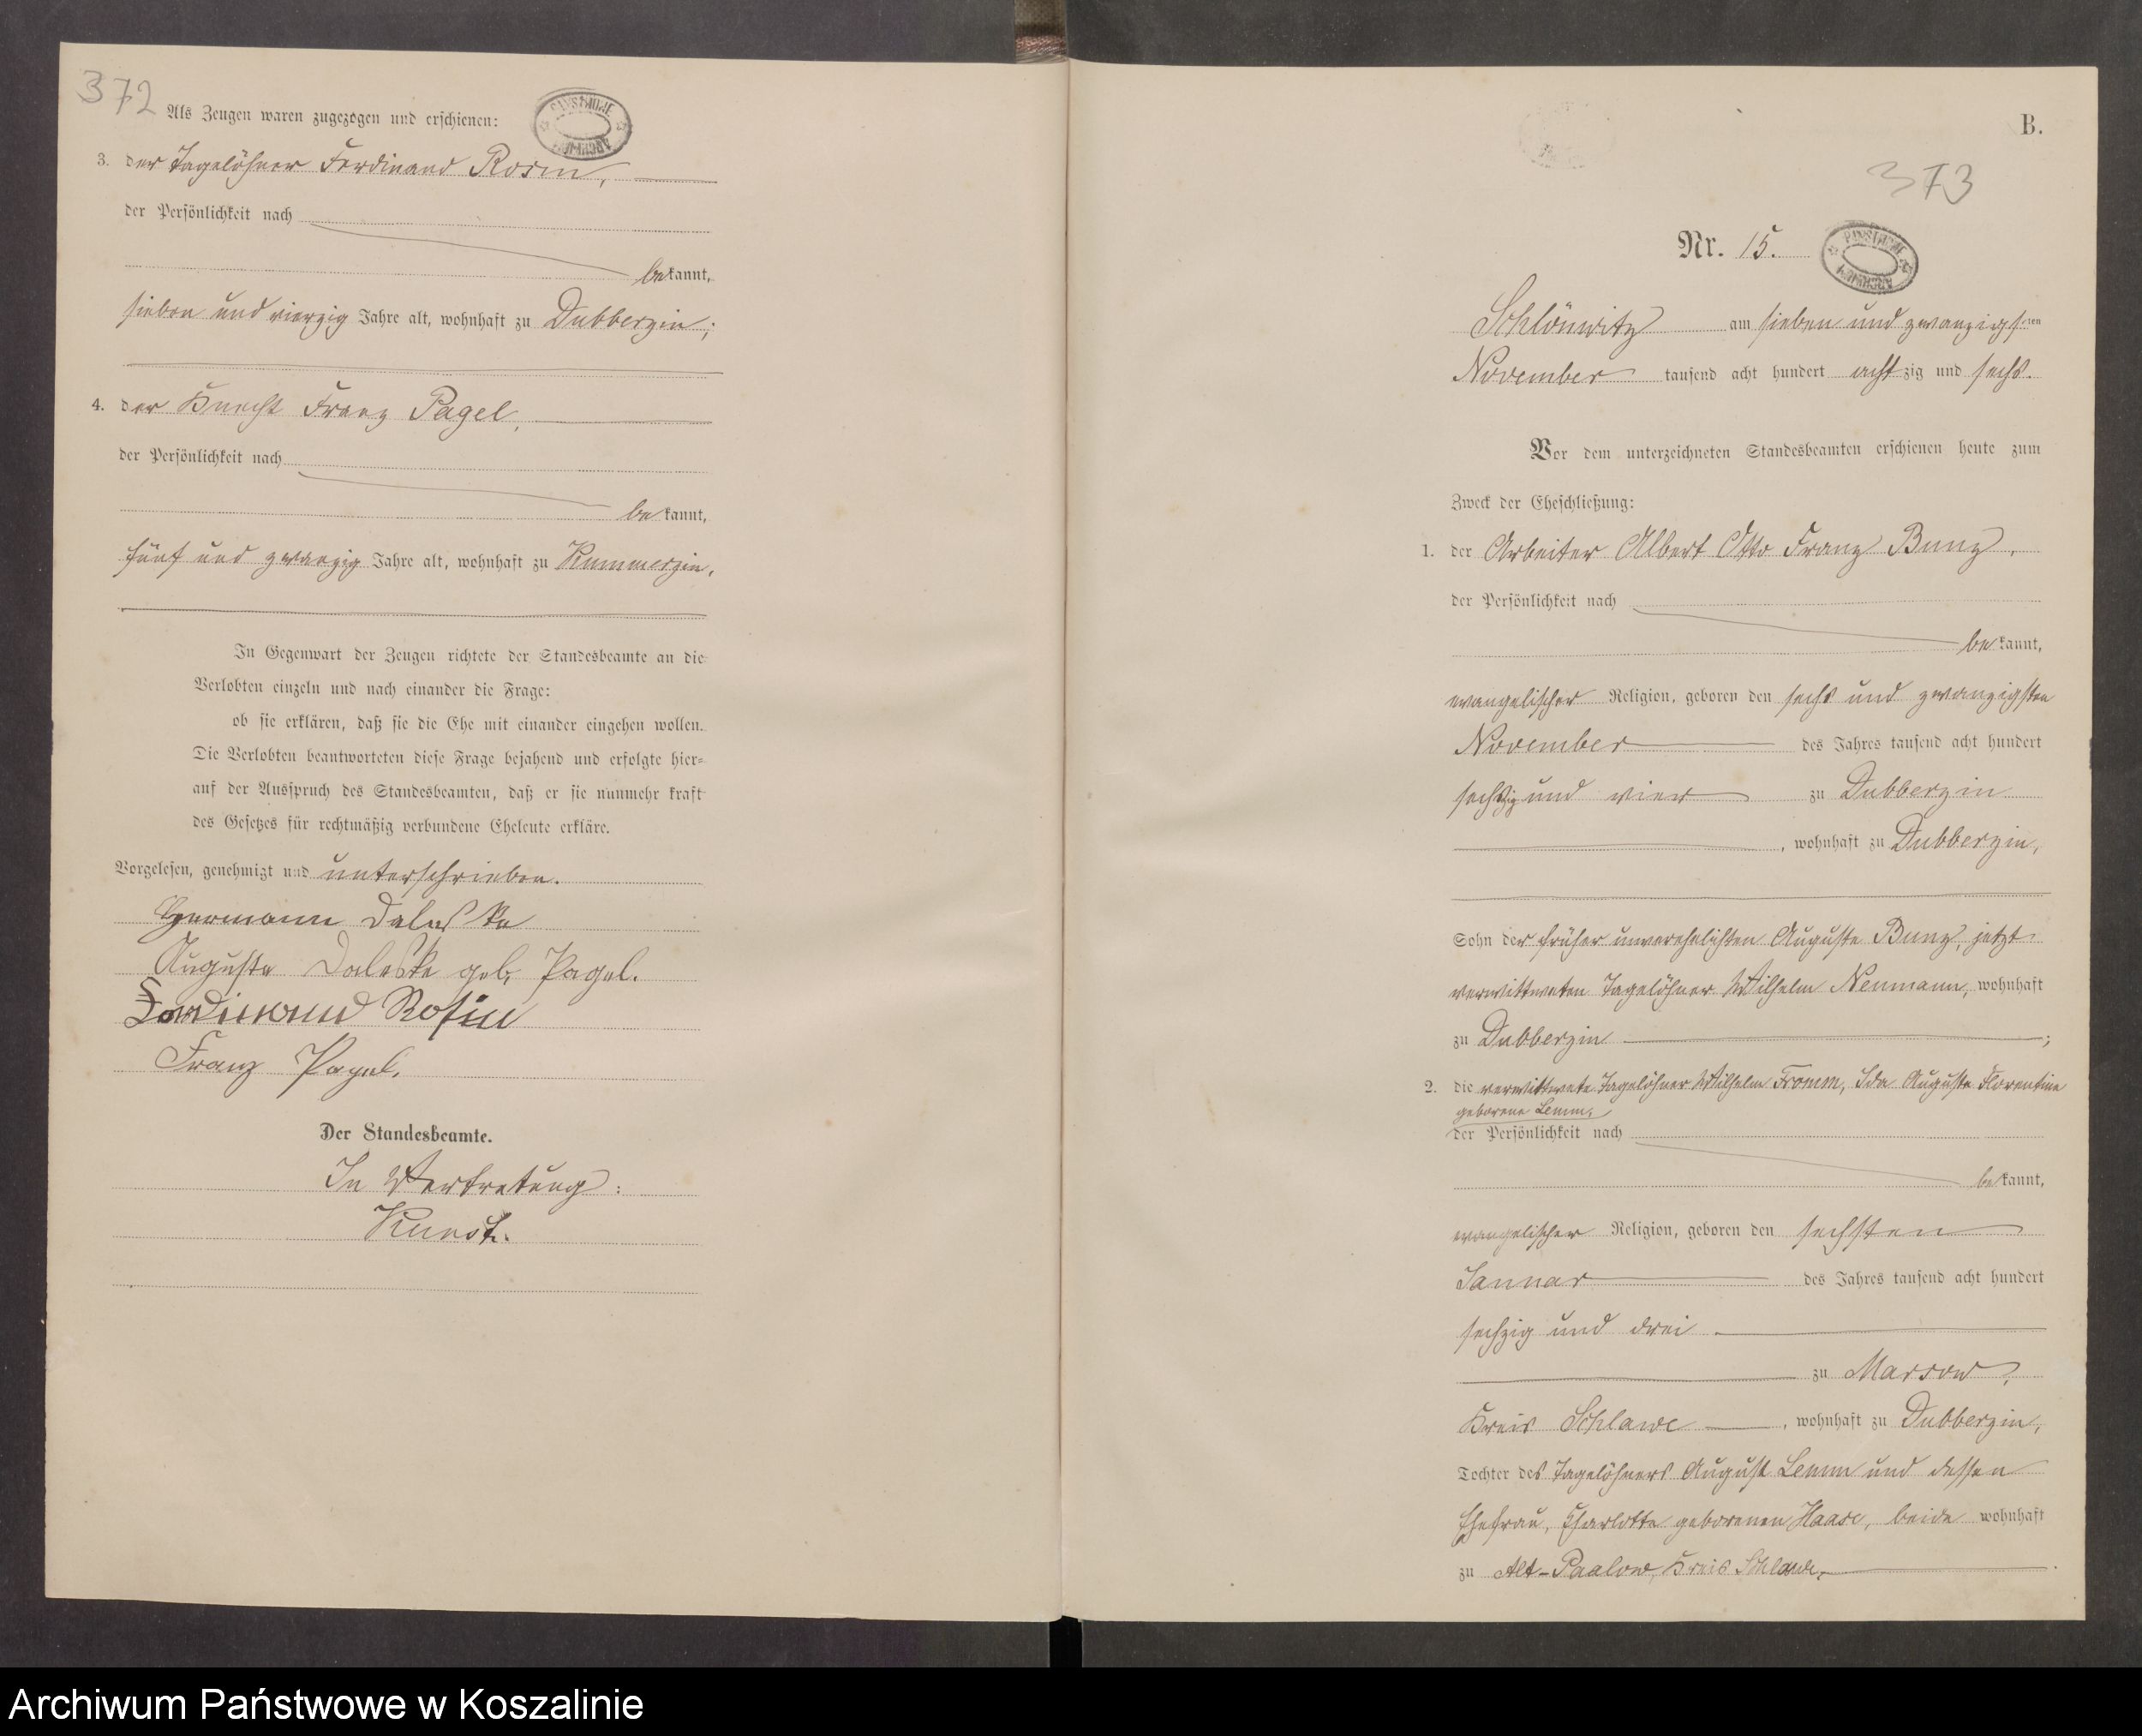 372
Als Zeugen waren zugezogen und erschienen:
3. der Tagelöhner Ferdinand Rosin,
der Persönlichkeit nach
bekannt,
sieben und vierzig Jahre alt, wohnhaft zu Dubberzin;
4. der Knecht Franz Pagel,
der Persönlichkeit nach
bekannt,
fünf und zwanzig Jahre alt, wohnhaft zu Kummerzin,
In Gegenwart der Zeugen richtete der Standesbeamte an die
Verlobten einzeln und nach einander die Frage:
ob sie erklären, daß sie die Ehe mit einander eingehen wollen.
Die Verlobten beantworteten diese Frage bejahend und erfolgte hier-
auf der Ausspruch des Standesbeamten, daß er sie nunmehr kraft
des Gesetzes für rechtmäßig verbundene Eheleute erkläre.
Vorgelesen, genehmigt und unterschrieben.
Hermann Daleske
Auguste Daleske geb. Pagel.
Ferdinand Rosin
Franz Pagel.
Der Standesbeamte.
In Vertretung:
Kunst.
B.
373
Nr. 15.
Schlönwitz am sieben und zwanzigsten
November tausend acht hundert achtzig und sechs.
Vor dem unterzeichneten Standesbeamten erschienen heute zum
Zweck der Eheschließung:
1. der Arbeiter Albert Otto Franz Bunz,
der Persönlichkeit nach
bekannt,
evangelischer Religion, geboren den sechs und zwanzigsten
November des Jahres tausend acht hundert
sechszig und vier zu Dubberzin
, wohnhaft zu Dubberzin,
Sohn der früher unverehelichten Auguste Bunz, jetzt
verwittweten Tagelöhner Wilhelm Neumann, wohnhaft
zu Dubberzin;
2. die verwittwete Tagelöhner Wilhelm Fromm, Ida Auguste Florentine
geborene Lemm,
der Persönlichkeit nach
bekannt,
evangelischer Religion, geboren den sechsten
Januar des Jahres tausend acht hundert
sechzig und drei
zu Marsow,
Kreis Schlawe, wohnhaft zu Dubberzin,
Tochter des Tagelöhners August Lemm und dessen
Ehefrau, Charlotte geborenen Haase, beide wohnhaft
zu Alt-Paalow, Kreis Schlawe.
Archiwum Państwowe w Koszalinie